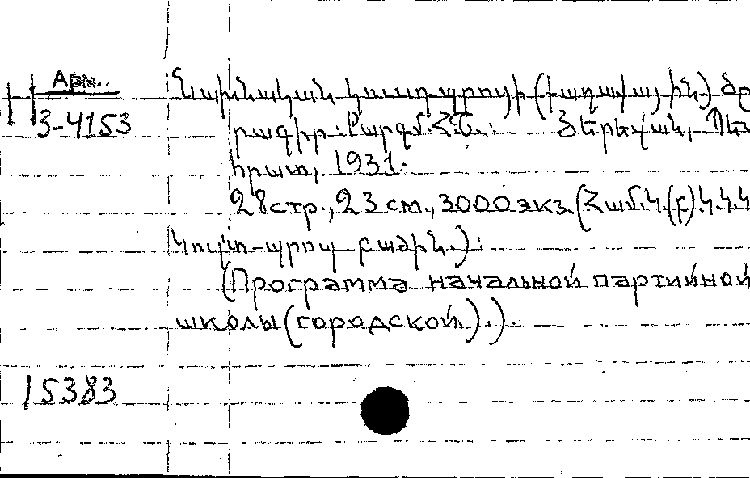 Арм.
3-4153
Նախնական կուսդպրոցի (քաղաքային) ծր
րագիր. Թարգմ. Հ.Ե. Յերեվան, Պետ
հրատ, 1931.
28 стр., 23 см., 3000 экз. (Համ.Կ.(բ)Կ.Կ.Կ
Կուլտ-պրոպ բաժին.).
(Программа начальной партийной
школы (городской).).
15383